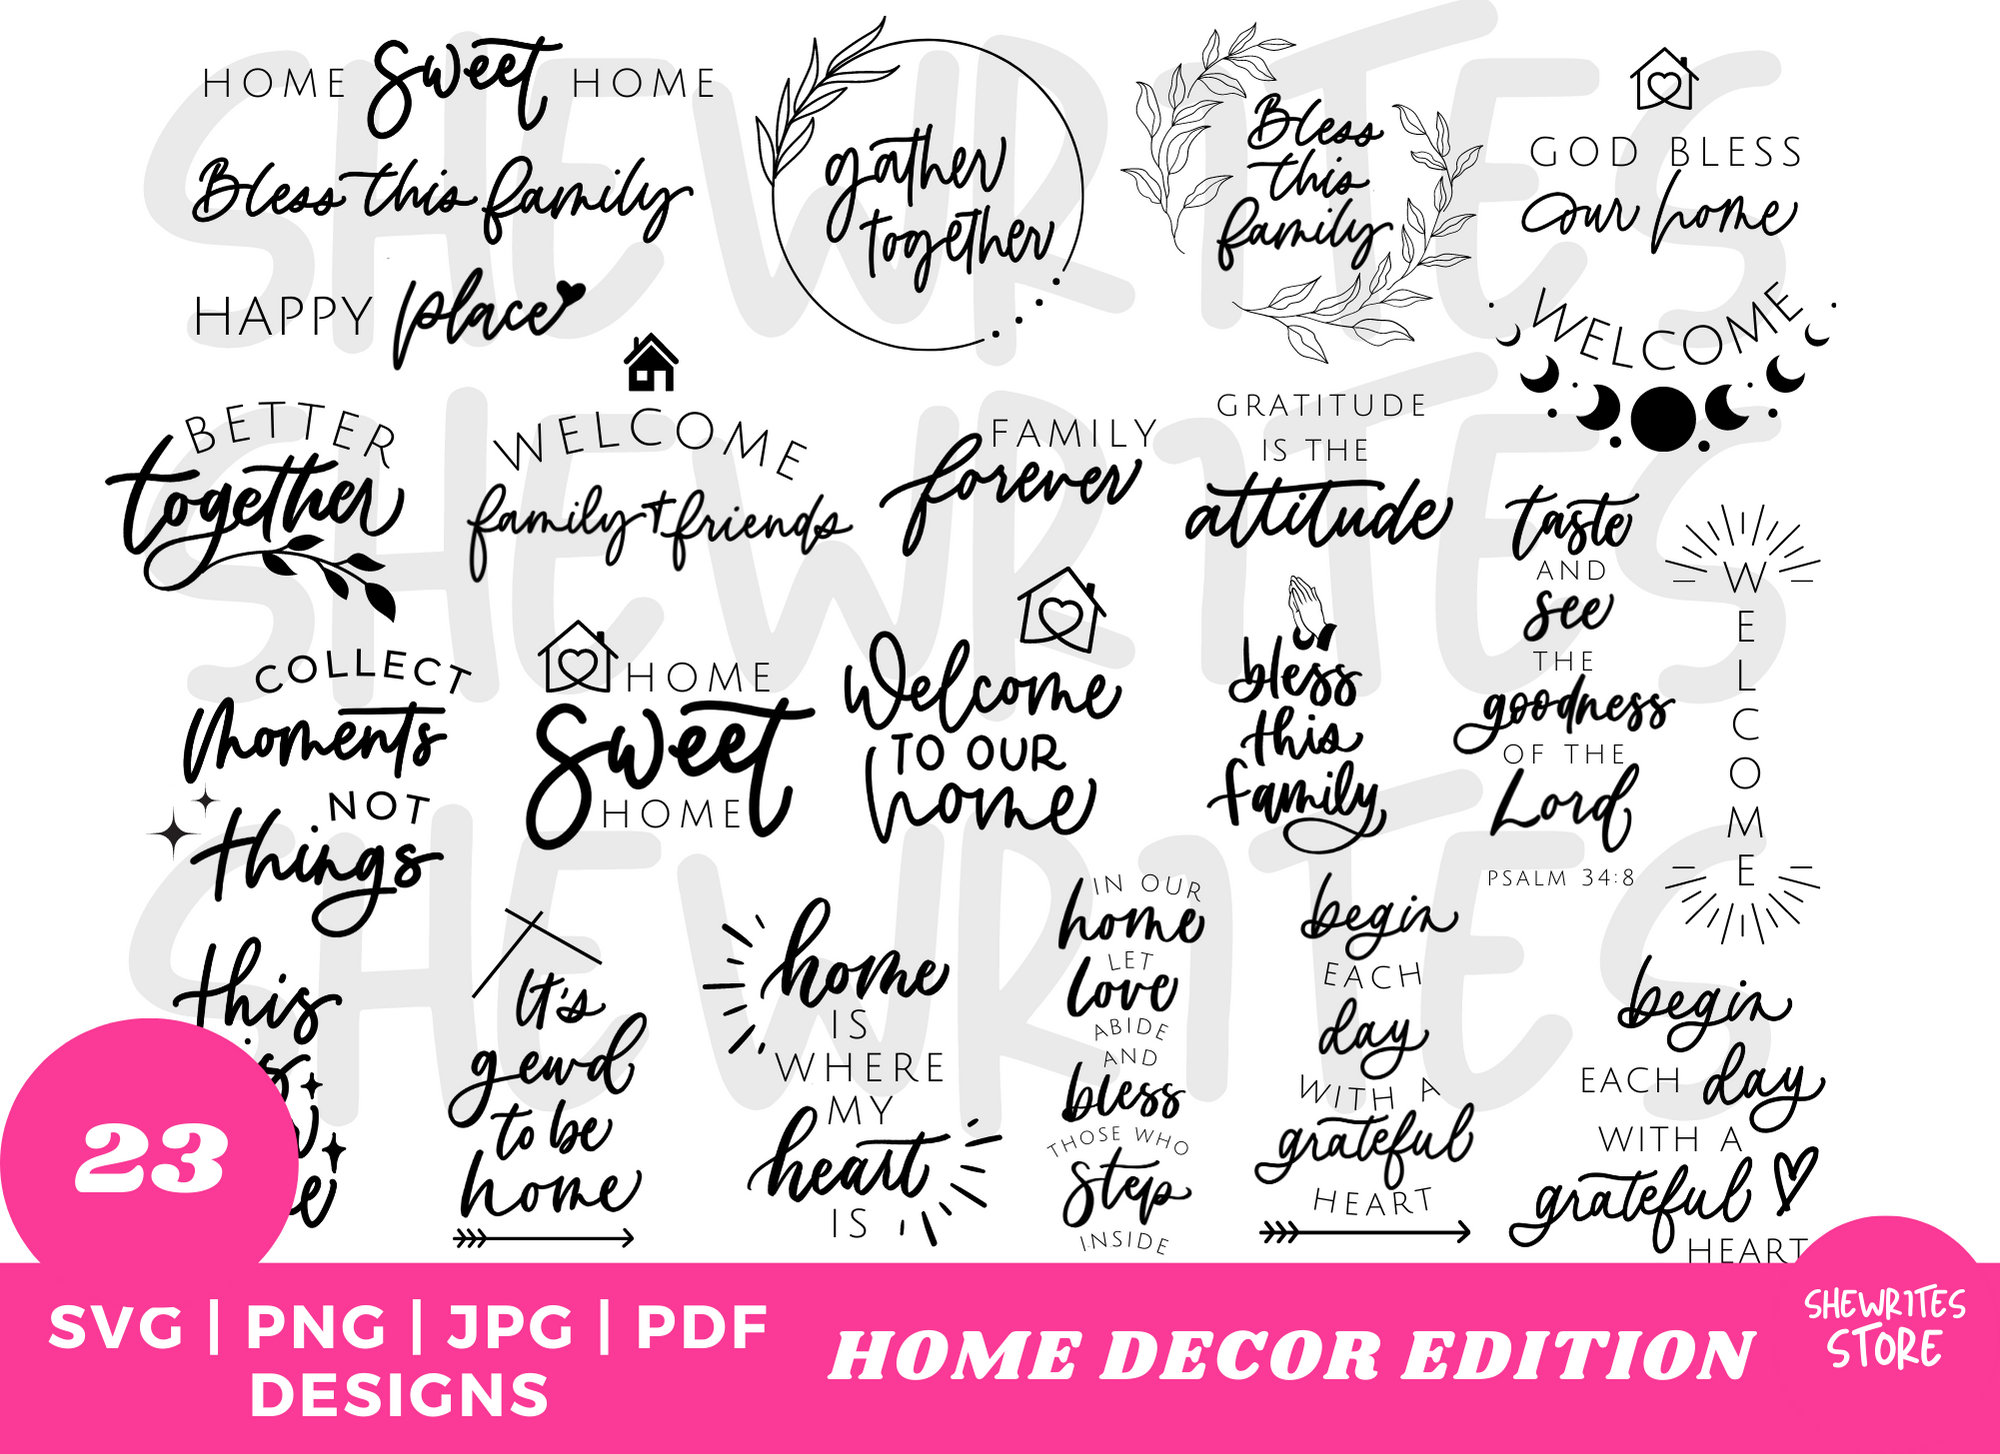 HOME sweet HOME
Bless this family
HAPPY place
gather
together
Bless
this
family
GOD BLESS
our home
WELCOME
BETTER
together
WELCOME
family + friends
FAMILY
forever
GRATITUDE
IS THE
attitude
taste
AND
see
THE
goodness
OF THE
Lord
PSALM 34:8
WELCOME
COLLECT
Moments
NOT
things
HOME
sweet
HOME
Welcome
TO OUR
home
bless
this
family
this
It's
gewd
to be
home
home
IS
WHERE
MY
heart
IS
IN OUR
home
LET
love
ABIDE
AND
bless
THOSE WHO
step
INSIDE
begin
EACH
day
WITH A
grateful
HEART
begin
EACH day
WITH A
grateful
HEART
23
SVG | PNG | JPG | PDF
DESIGNS
HOME DECOR EDITION
SHEWR1TES
STORE
SHEWR1TES
SHEWR1TES
SHEWR1TES